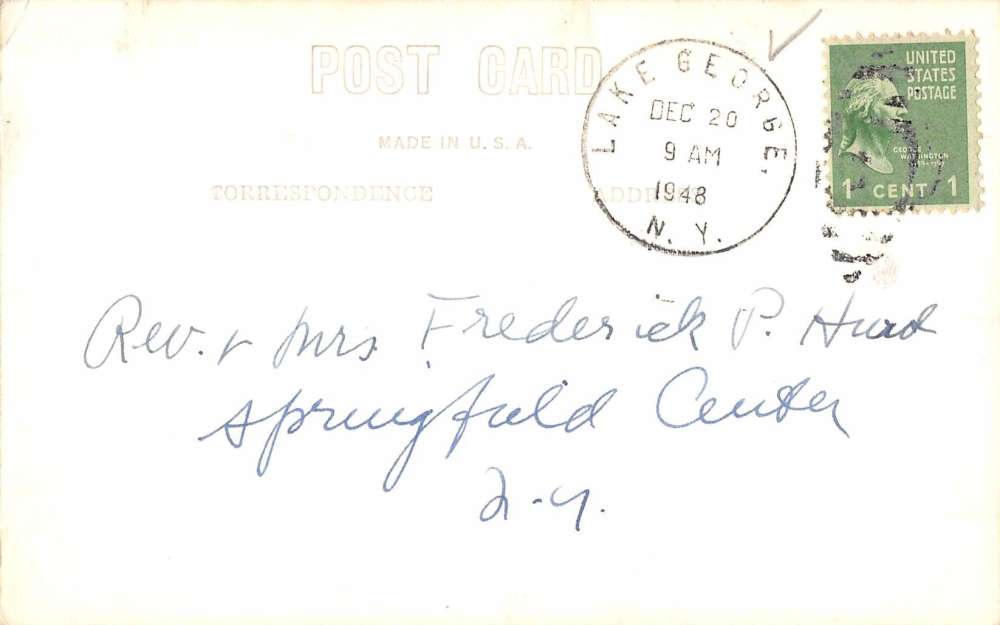 POST CARD
MADE IN U. S. A.
CORRESPONDENCE
ADDRESS
LAKE GEORGE,
DEC 20
9 AM
1948
N. Y.
UNITED
STATES
POSTAGE
GEORGE
WASHINGTON
1 CENT 1
Rev. & Mrs Frederick P. Hurd
Springfield Center
N-Y.